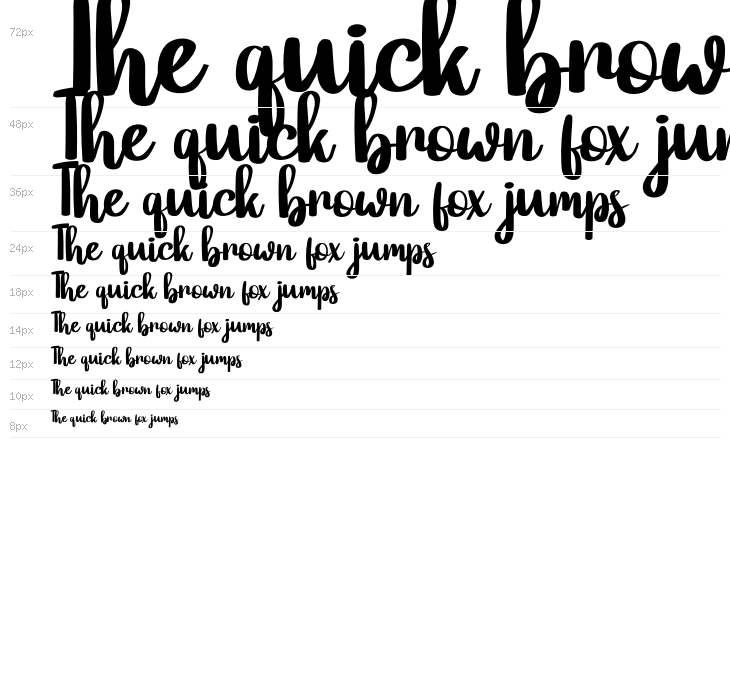 72px The quick brow
48px The quick brown fox jum
36px The quick brown fox jumps
24px The quick brown fox jumps
18px The quick brown fox jumps
14px The quick brown fox jumps
12px The quick brown fox jumps
10px The quick brown fox jumps
8px The quick brown fox jumps